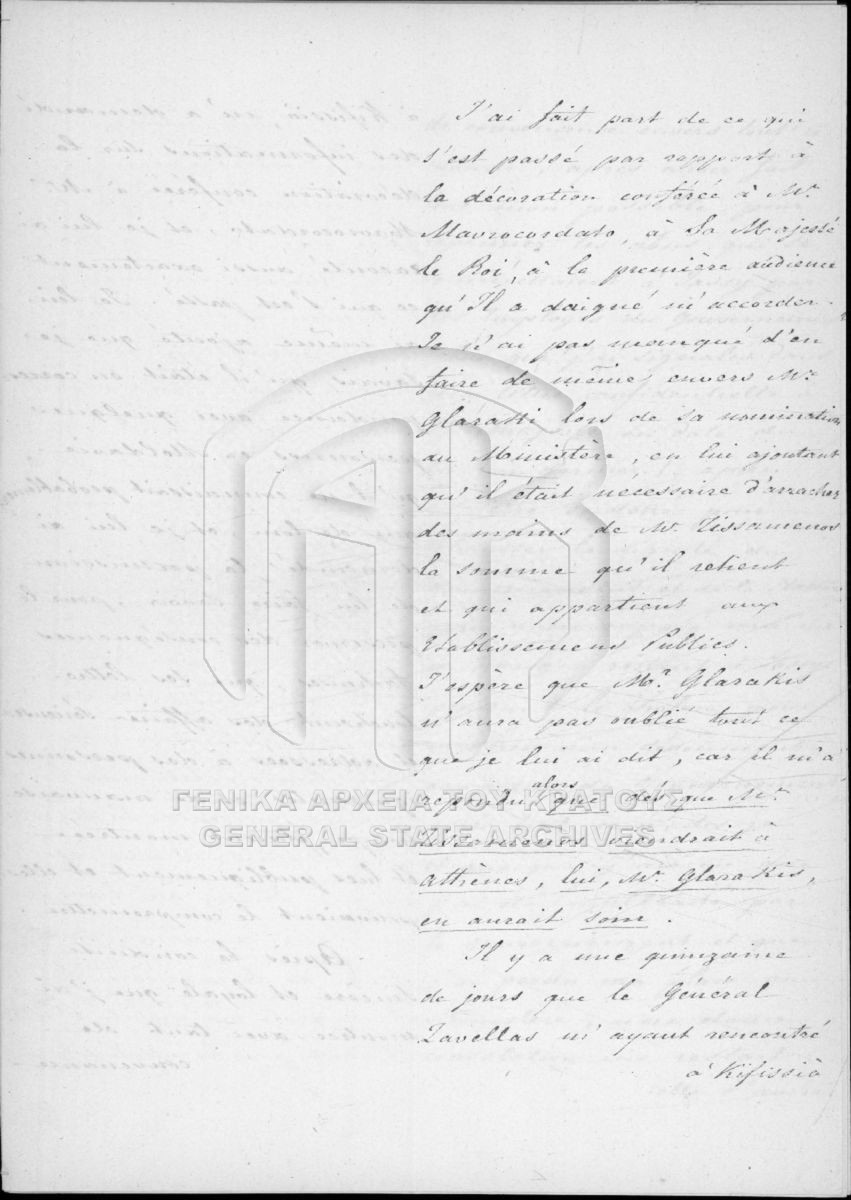 J'ai fait part de ce qui
s'est passé par rapport à
la décoration conférée à Mr
Mavrocordato, à Sa Majesté
le Roi, à la première audience
qu'Il a daigné m'accorder.
Je n'ai pas manqué d'en
faire de même envers Mr
Glaraki lors de sa nomination
au Ministère, en lui ajoutant
qu'il était nécessaire d'arracher
des mains de Mr Tissamenos
la somme qu'il retient
et qui appartient aux
Etablissemens Publics.
J'espère que Mr Glarakis
n'aura pas oublié tout ce
que je lui ai dit, car il m'a
repondu alors que dès que Mr
Tissamenos viendrait à
Athènes, lui, Mr Glarakis,
en aurait soin.
Il y a une quinzaine
de jours que le Général
Zavellas m'ayant rencontré
à Kifissià
ΓΕΝΙΚΑ ΑΡΧΕΙΑ ΤΟΥ ΚΡΑΤΟΥΣ
GENERAL STATE ARCHIVES